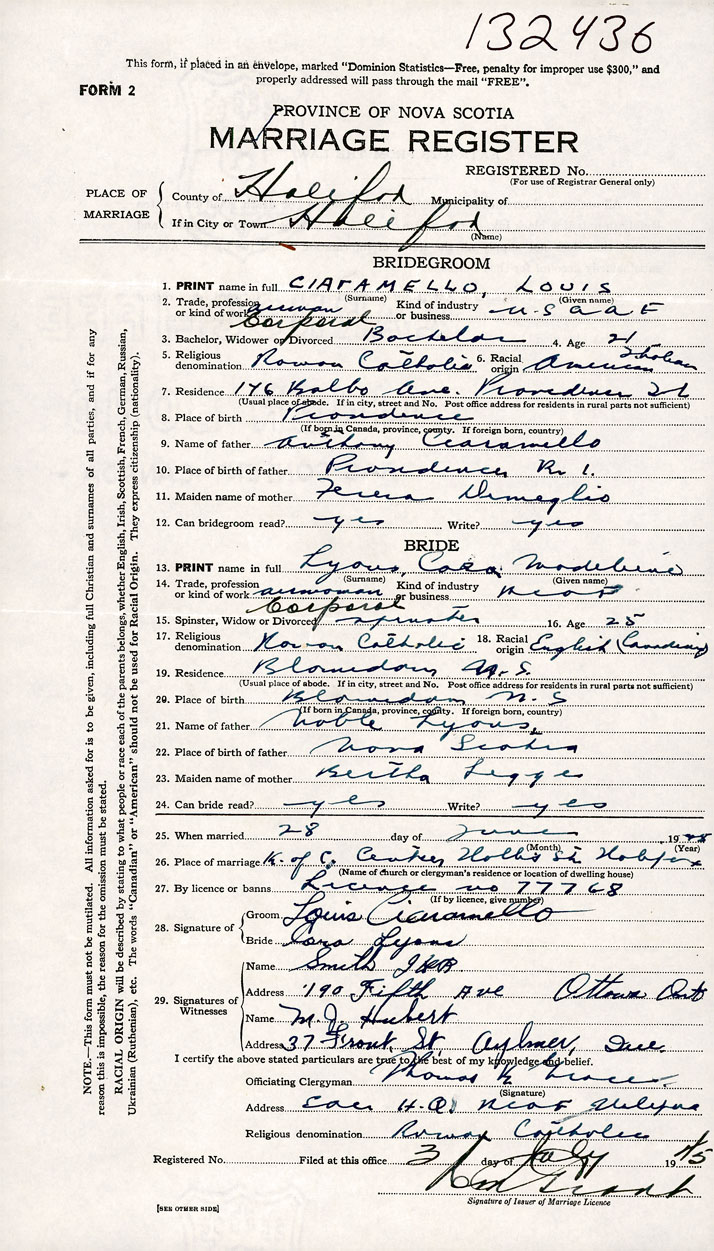 132436
This form, if placed in an envelope, marked "Dominion Statistics—Free, penalty for improper use $300," and
properly addressed will pass through the mail "FREE".
FORM 2
PROVINCE OF NOVA SCOTIA
MARRIAGE REGISTER
REGISTERED No.
(For use of Registrar General only)
PLACE OF MARRIAGE
County of Halifax Municipality of
If in City or Town Halifax
(Name)
BRIDEGROOM
1. PRINT name in full CIARAMELLO, LOUIS
(Surname) (Given name)
2. Trade, profession or kind of work airman Corporal Kind of industry or business U S A A F
3. Bachelor, Widower or Divorced Bachelor 4. Age 21
5. Religious denomination Roman Catholic 6. Racial origin American Italian
7. Residence 176 Balbo Ave. Providence
(Usual place of abode. If in city, street and No. Post office address for residents in rural parts not sufficient)
8. Place of birth Providence
(If born in Canada, province, county. If foreign born, country)
9. Name of father Anthony Ciaramello
10. Place of birth of father Providence R. I.
11. Maiden name of mother Teresa Dimeglio
12. Can bridegroom read? yes Write? yes
BRIDE
13. PRINT name in full Lyons, Cora Madeleine
(Surname) (Given name)
14. Trade, profession or kind of work airwoman Corporal Kind of industry or business RCAF
15. Spinster, Widow or Divorced spinster 16. Age 25
17. Religious denomination Roman Catholic 18. Racial origin English (Canadian)
19. Residence Blomidon N.S.
(Usual place of abode. If in city, street and No. Post office address for residents in rural parts not sufficient)
20. Place of birth Blomidon N.S
(If born in Canada, province, county. If foreign born, country)
21. Name of father Noble Lyons
22. Place of birth of father Nova Scotia
23. Maiden name of mother Bertha Legge
24. Can bride read? yes Write? yes
25. When married 28 day of June 1945
(Month) (Year)
26. Place of marriage K. of C. Centre, Hollis St. Halifax
(Name of church or clergyman's residence or location of dwelling house)
27. By licence or banns Licence no 77768
(If by licence, give number)
28. Signature of
Groom Louis Ciaramello
Bride Cora Lyons
29. Signatures of Witnesses
Name Smith
Address 190 Fifth Ave Ottawa Ont
Name M. J. Hubert
Address 37 Front St, Aylmer, Que.
I certify the above stated particulars are true to the best of my knowledge and belief.
Officiating Clergyman Thomas
(Signature)
Address Eac H.Q. RCAF Halifax
Religious denomination Roman Catholic
Registered No. Filed at this office 3 day of July 1945
Signature of Issuer of Marriage Licence
[SEE OTHER SIDE]
NOTE.—This form must not be mutilated. All information asked for is to be given, including full Christian and surnames of all parties, and if for any
reason this is impossible, the reason for the omission must be stated.
RACIAL ORIGIN will be described by stating to what people or race each of the parents belongs, whether English, Irish, Scottish, French, German, Russian,
Ukrainian (Ruthenian), etc. The words "Canadian" or "American" should not be used for Racial Origin. They express citizenship (nationality).